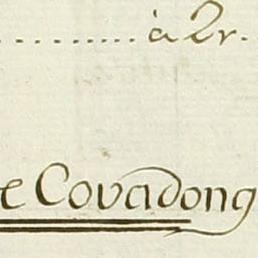 ............... à 2r.
e Covadong